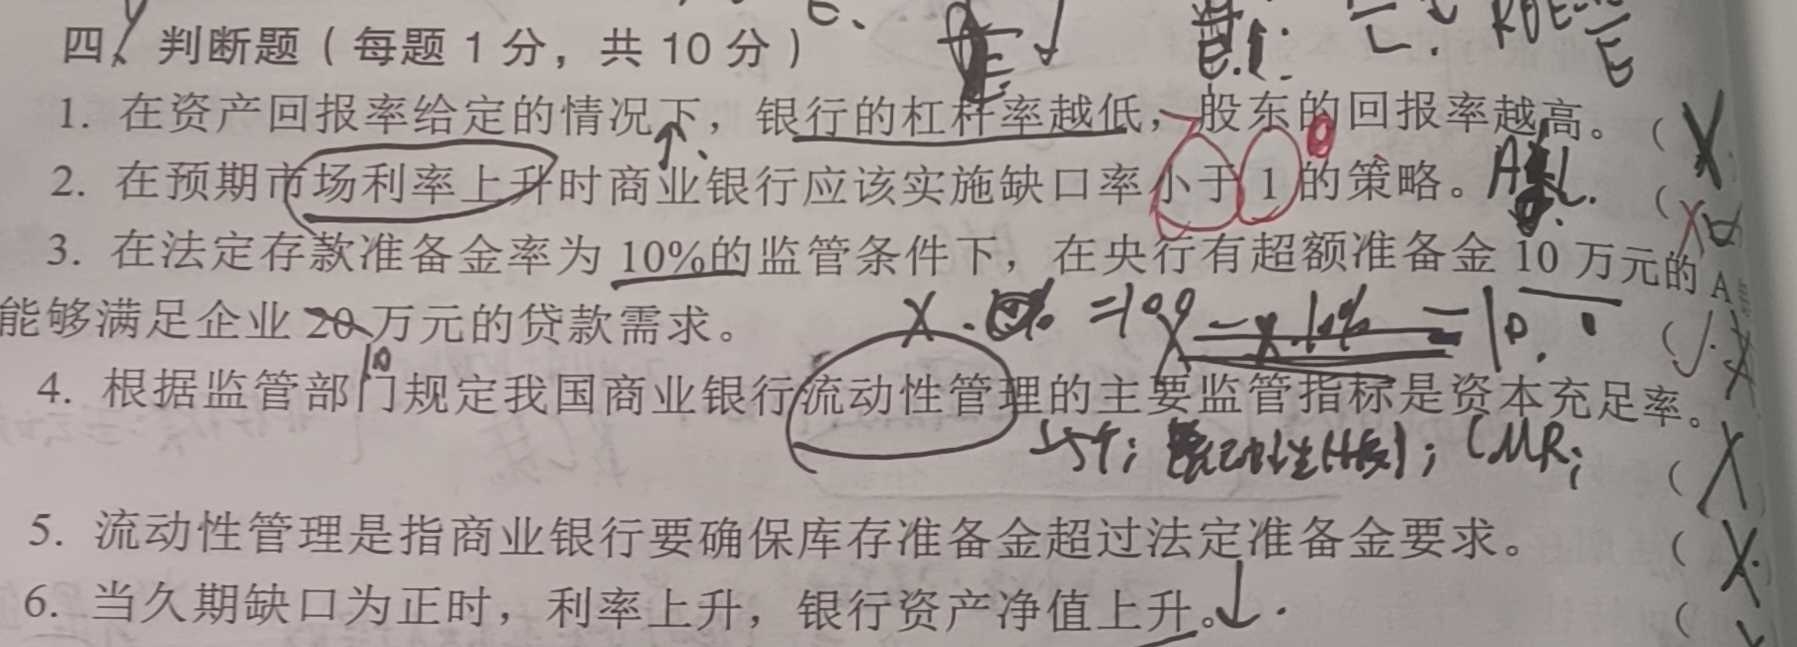 四、判断题（每题1分，共10分）
1. 在资产回报率给定的情况下，银行的杠杆率越低，股东的回报率越高。（ X
2. 在预期市场利率上升时商业银行应该实施缺口率小于1的策略。（ X
3. 在法定存款准备金率为10%的监管条件下，在央行有超额准备金10万元的A
能够满足企业20万元的贷款需求。（
10
4. 根据监管部门规定我国商业银行流动性管理的主要监管指标是资本充足率。
（ X
5. 流动性管理是指商业银行要确保库存准备金超过法定准备金要求。（ X
6. 当久期缺口为正时，利率上升，银行资产净值上升。↓（